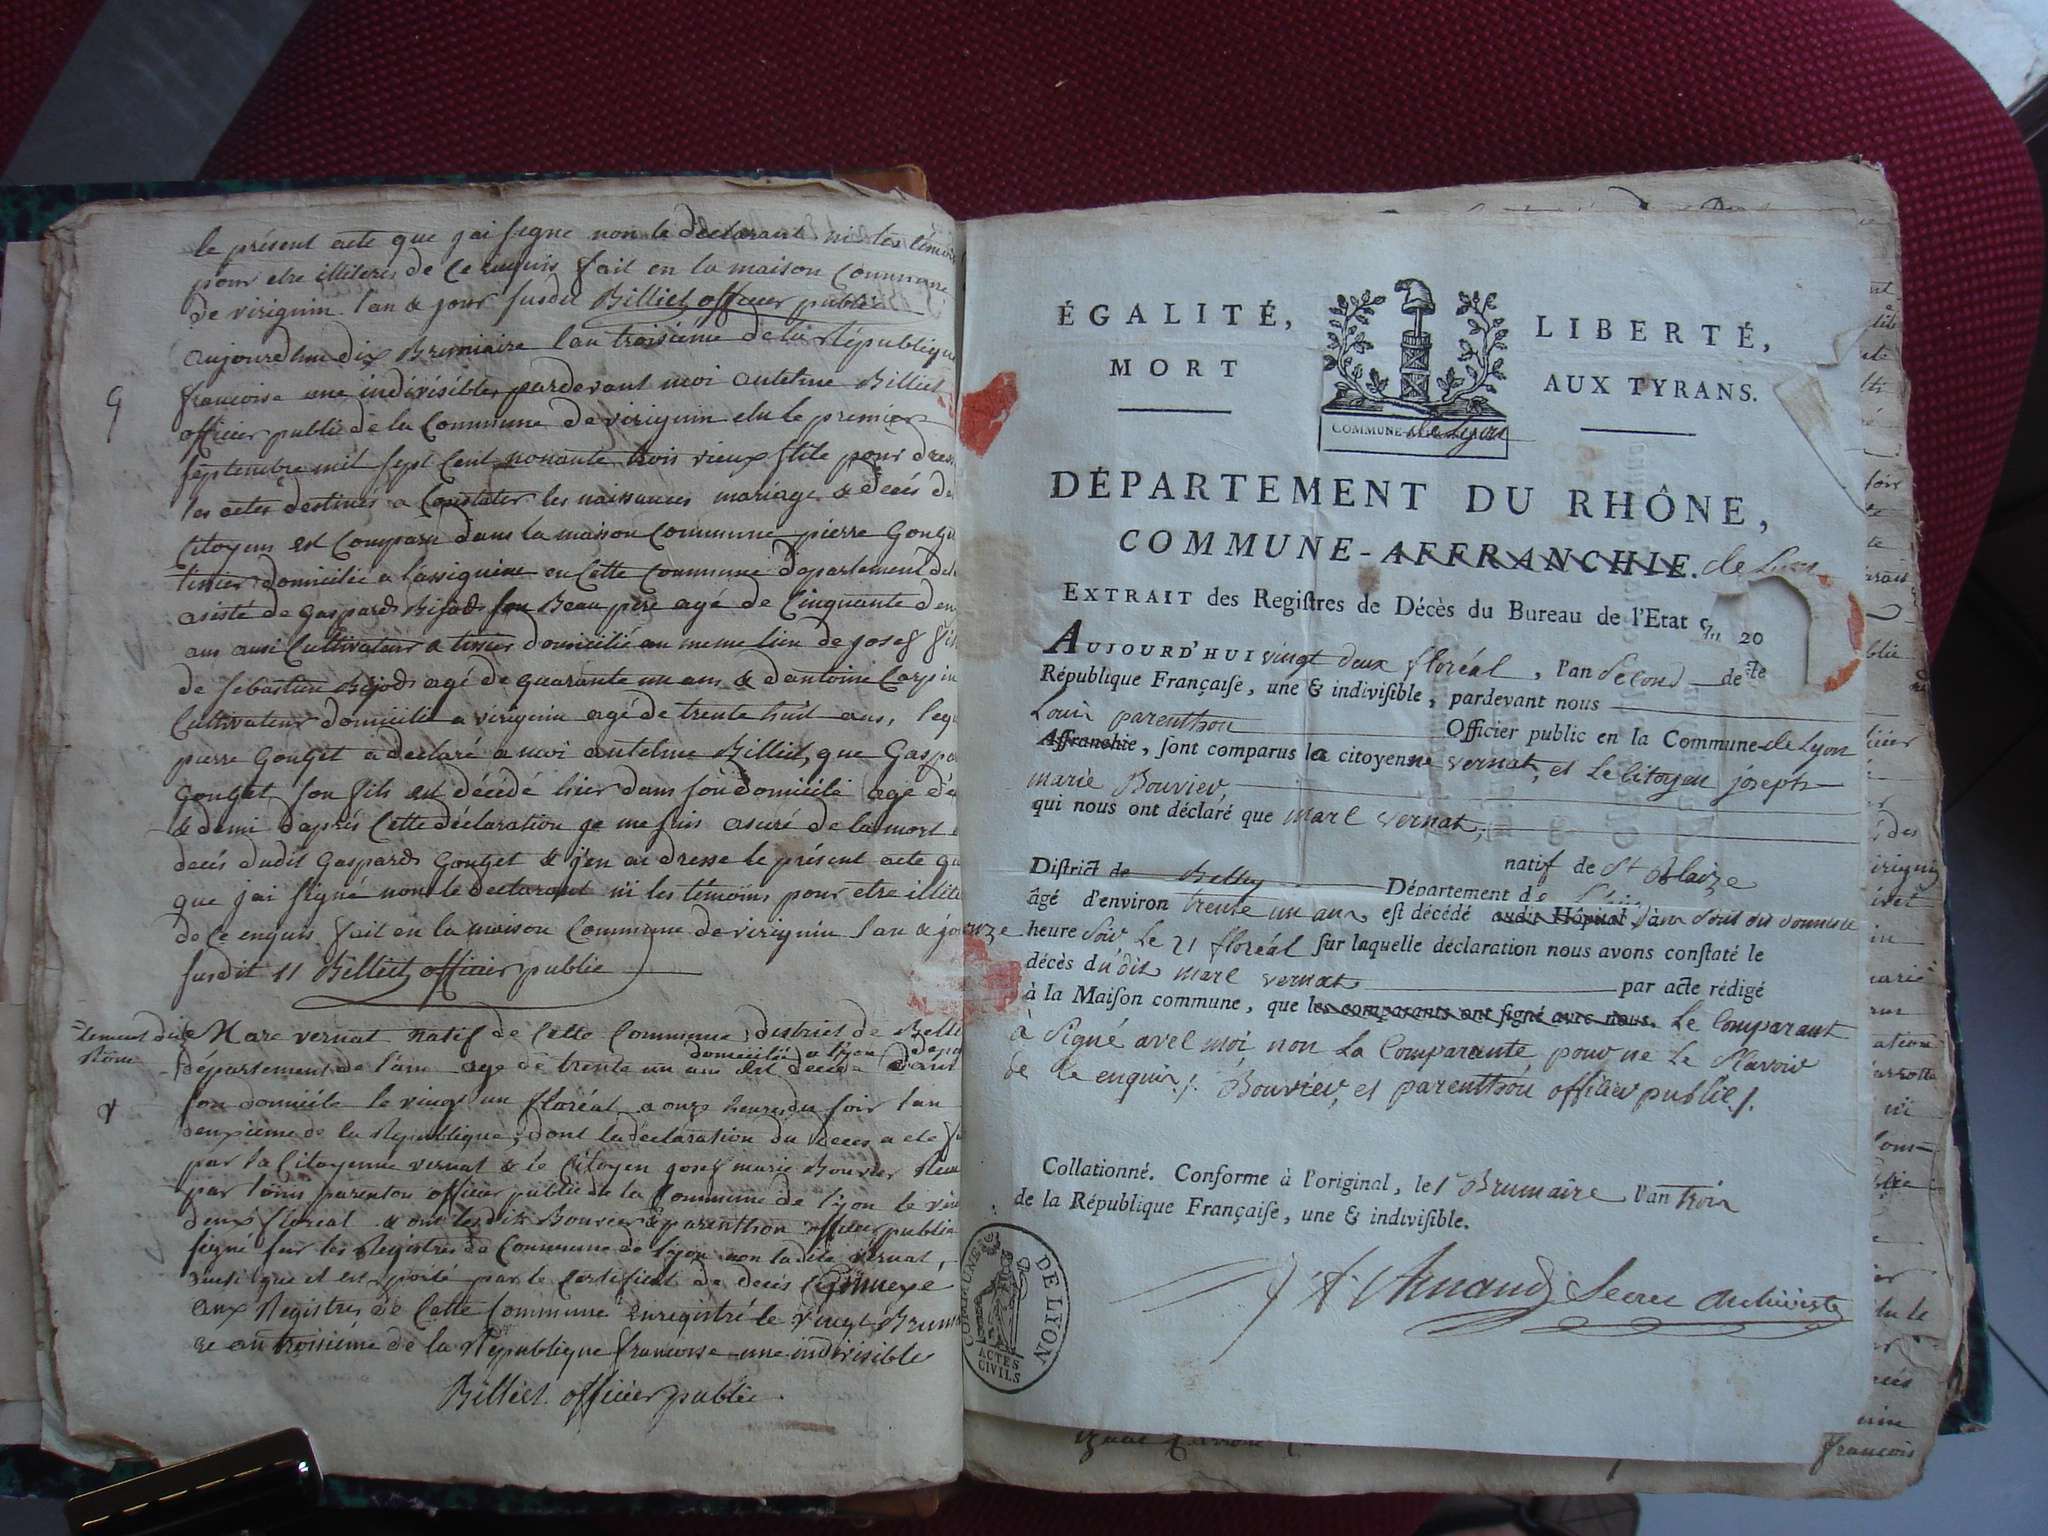 le présent acte que j'ai signe non le déclarant ni les témoins
pour etre illiterés de ce enquis fait en la maison Commune
de virignin l'an & jour susdit Billiet officier public
aujourdhui dix Brumiaire l'an troisième de la République
francoise une indivisible, pardevant moi antelme Billiet
officier public de la Commune de virignin elu le premier
septembre mil sept cent nonante trois vieux stile pour dress
les actes destinés a Constater les naissances mariage & décés de
Citoyens est Comparu dans la maison Commune pierre Gonget
tissier domicilié a lassignieu en Cette Commune département de
asisté de Gaspard son Beau pere agé de Cinquante deux
ans ausi Cultivateur a tissier domicilié au meme lieu de josef fils
de sebastien agé de quarante un ans & dantoine Carpin
Cultivateur domicilié a virignin agé de trente huit ans, lequ
pierre Gonget a déclaré a moi antelme Billiet, que Gaspa
Gonget son fils est décédé hier dans son domicile agé d'u
& demi d'aprés Cette déclaration je me suis asuré de la mort
decés dudit Gaspard Gonget & j'en ai dresse le présent acte
que jai signé non le declarant ni les témoins pour etre illite
de ce enquis fait en la maison Commune de virignin l'an & jo
susdit 11 Billiet officier public
Marc vernat natif de Cette Commune district de Belle
domicilié a lyon depar
tement du
Rône
département de l'ain age de trente un ans est décédé dans
son domicile le vingt un floréal a onze heures du soir l'an
deuxième de la République, dont la déclaration du deces a eté f
par la Citoyenne vernat & le Citoyen josef marie Bouvier
par loüis parenton officier public de la Commune de lyon le vin
deux floréal & ont lesdits Bouvier & parenthon officier public
signé sur les Registres de Commune de lyon non ladite vernat,
ainsi que il est porté par le Certificat de decés
aux Registres de Cette Commune enregistré le vingt Brum
re an troisième de la République francoise une indivisible
Billiet officier public
ÉGALITÉ, LIBERTÉ,
MORT AUX TYRANS.
COMMUNE de Lyon
DÉPARTEMENT DU RHÔNE,
COMMUNE-AFFRANCHIE. de Lyon
EXTRAIT des Regiſtres de Décès du Bureau de l'Etat
20
AUJOURD'HUI vingt deux floréal, l'an Second de
République Françaiſe, une & indiviſible, pardevant nous
Louis parenthon Officier public en la Commune de Lyon
Affranchie, ſont comparus la citoyenne vernat, et Le Citoyen joseph
marie Bouvier,
qui nous ont déclaré que marc vernat,
natif de St Blaize
Diſtrict de Belley Département de Lain
âgé d'environ trente un ans eſt décédé audit Hôpital dans Son domicile
onze
heure Soir, Le 21 floréal ſur laquelle déclaration nous avons conſtaté le
décès dudit marc vernat par acte rédigé
à la Maiſon commune, que les comparants ont ſigné avec nous. Le Comparant
à Signé avec moi, non La Comparante pour ne Le Scavoir
de ce enquis /. Bouvier, et parenthon officier public /.
Collationné. Conforme à l'original, le 1er Brumaire l'an trois
de la République Françaiſe, une & indiviſible.
Arnaud Secre archiviste
COMMUNE DE LYON
ACTES
CIVILS
francois